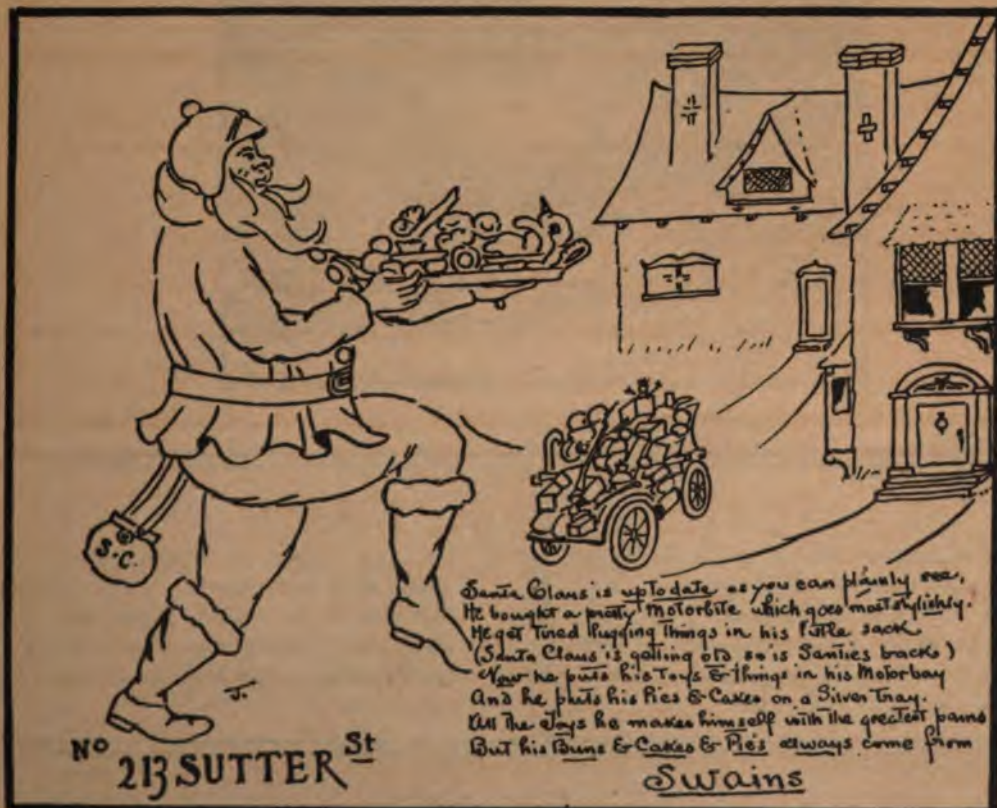 S.-C.
Santa Claus is up to date as you can plainly see,
He bought a pretty Motorbite which goes most stylishly.
He got tired lugging things in his little sack
(Santa Claus is getting old so is Santies back.)
Now he puts his Toys & things in his Motorbay
And he puts his Pies & Cakes on a Silver Tray.
All the Toys he makes himself with the greatest pains
But his Buns & Cakes & Pie's always come from
Swains
J.
No 213 SUTTER St